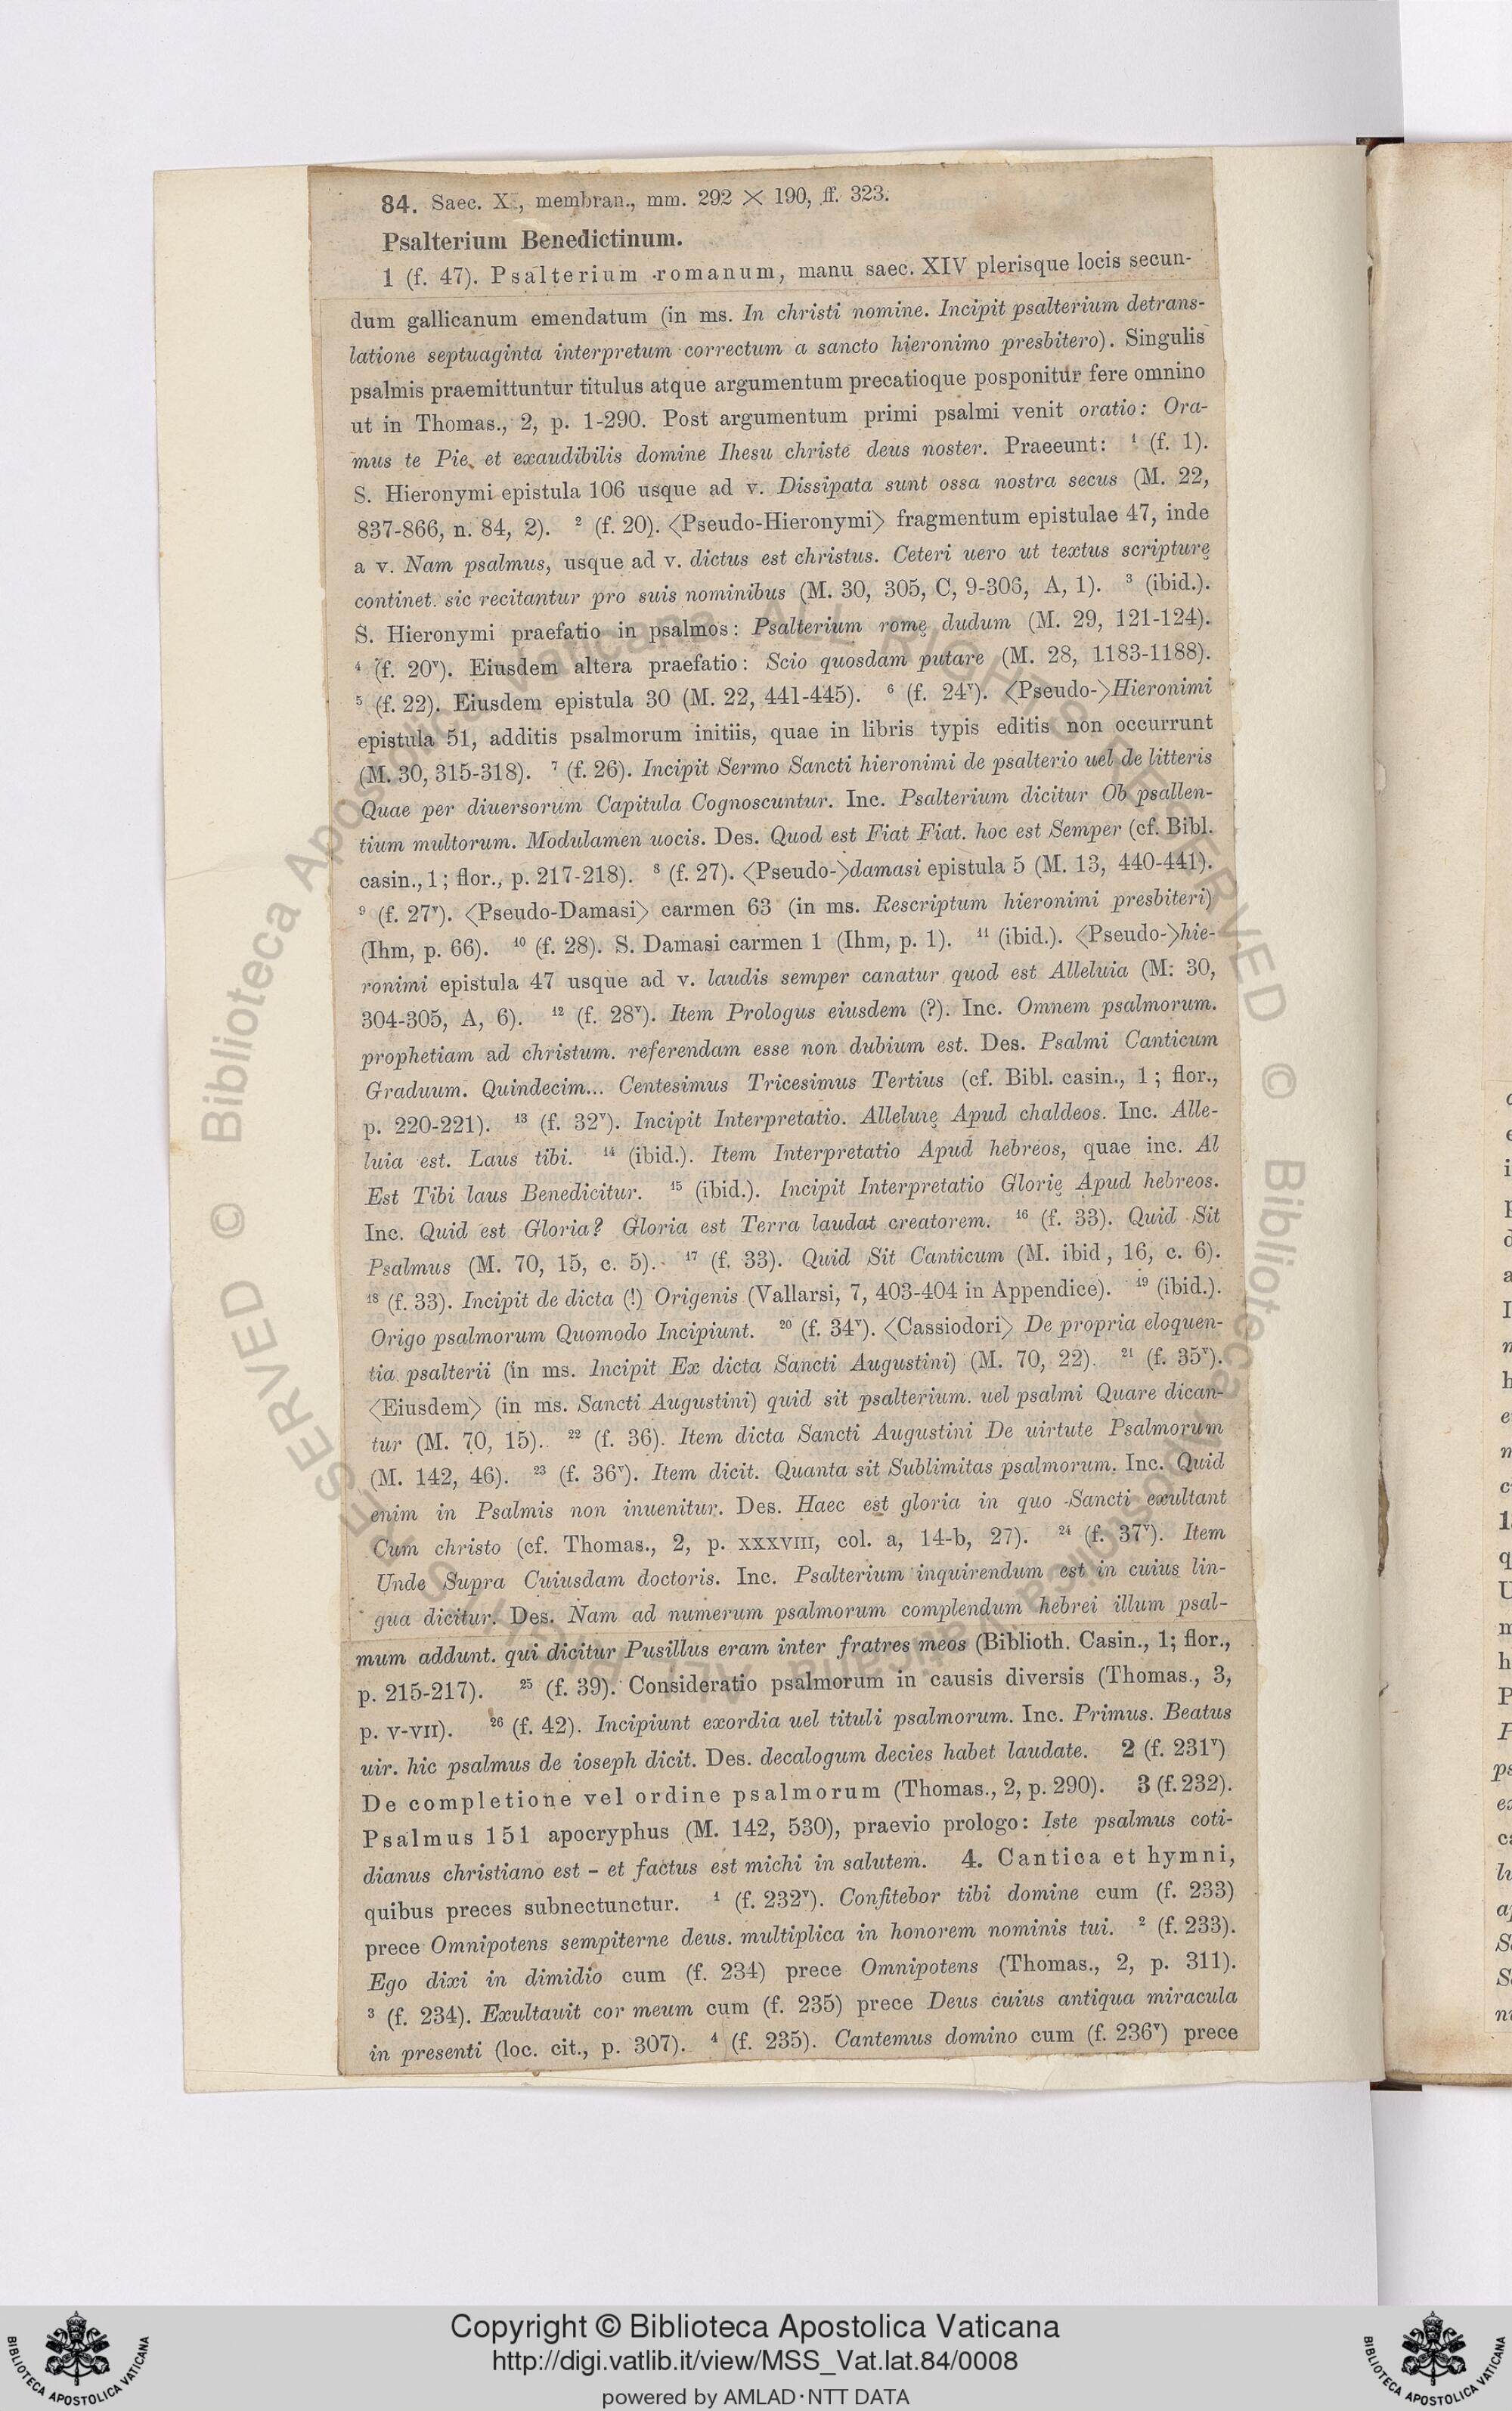 84. Saec. X., membran., mm. 292 × 190, ff. 323.
Psalterium Benedictinum.
1 (f. 47). Psalterium romanum, manu saec. XIV plerisque locis secun-
dum gallicanum emendatum (in ms. In christi nomine. Incipit psalterium detrans-
latione septuaginta interpretum correctum a sancto hieronimo presbitero). Singulis
psalmis praemittuntur titulus atque argumentum precatioque posponitur fere omnino
ut in Thomas., 2, p. 1-290. Post argumentum primi psalmi venit oratio: Ora-
mus te Pie, et exaudibilis domine Ihesu christe deus noster. Praeeunt: ¹ (f. 1).
S. Hieronymi epistula 106 usque ad v. Dissipata sunt ossa nostra secus (M. 22,
837-866, n. 84, 2). ² (f. 20). <Pseudo-Hieronymi> fragmentum epistulae 47, inde
a v. Nam psalmus, usque ad v. dictus est christus. Ceteri uero ut textus scripturę
continet. sic recitantur pro suis nominibus (M. 30, 305, C, 9-306, A, 1). ³ (ibid.).
S. Hieronymi praefatio in psalmos: Psalterium romę dudum (M. 29, 121-124).
⁴ (f. 20ᵛ). Eiusdem altera praefatio: Scio quosdam putare (M. 28, 1183-1188).
⁵ (f. 22). Eiusdem epistula 30 (M. 22, 441-445). ⁶ (f. 24ᵛ). <Pseudo->Hieronimi
epistula 51, additis psalmorum initiis, quae in libris typis editis non occurrunt
(M. 30, 315-318). ⁷ (f. 26). Incipit Sermo Sancti hieronimi de psalterio uel de litteris
Quae per diuersorum Capitula Cognoscuntur. Inc. Psalterium dicitur Ob psallen-
tium multorum. Modulamen uocis. Des. Quod est Fiat Fiat. hoc est Semper (cf. Bibl.
casin., 1; flor., p. 217-218). ⁸ (f. 27). <Pseudo->damasi epistula 5 (M. 13, 440-441).
⁹ (f. 27ᵛ). <Pseudo-Damasi> carmen 63 (in ms. Rescriptum hieronimi presbiteri)
(Ihm, p. 66). ¹⁰ (f. 28). S. Damasi carmen 1 (Ihm, p. 1). ¹¹ (ibid.). <Pseudo->hie-
ronimi epistula 47 usque ad v. laudis semper canatur quod est Alleluia (M: 30,
304-305, A, 6). ¹² (f. 28ᵛ). Item Prologus eiusdem (?). Inc. Omnem psalmorum.
prophetiam ad christum. referendam esse non dubium est. Des. Psalmi Canticum
Graduum. Quindecim... Centesimus Tricesimus Tertius (cf. Bibl. casin., 1; flor.,
p. 220-221). ¹³ (f. 32ᵛ). Incipit Interpretatio. Alleluię Apud chaldeos. Inc. Alle-
luia est. Laus tibi. ¹⁴ (ibid.). Item Interpretatio Apud hebreos, quae inc. Al
Est Tibi laus Benedicitur. ¹⁵ (ibid.). Incipit Interpretatio Glorię Apud hebreos.
Inc. Quid est Gloria? Gloria est Terra laudat creatorem. ¹⁶ (f. 33). Quid Sit
Psalmus (M. 70, 15, c. 5). ¹⁷ (f. 33). Quid Sit Canticum (M. ibid, 16, c. 6).
¹⁸ (f. 33). Incipit de dicta (!) Origenis (Vallarsi, 7, 403-404 in Appendice). ¹⁹ (ibid.).
Origo psalmorum Quomodo Incipiunt. ²⁰ (f. 34ᵛ). <Cassiodori> De propria eloquen-
tia psalterii (in ms. Incipit Ex dicta Sancti Augustini) (M. 70, 22). ²¹ (f. 35ᵛ).
<Eiusdem> (in ms. Sancti Augustini) quid sit psalterium. uel psalmi Quare dican-
tur (M. 70, 15). ²² (f. 36). Item dicta Sancti Augustini De uirtute Psalmorum
(M. 142, 46). ²³ (f. 36ᵛ). Item dicit. Quanta sit Sublimitas psalmorum. Inc. Quid
enim in Psalmis non inuenitur. Des. Haec est gloria in quo Sancti exultant
Cum christo (cf. Thomas., 2, p. XXXVIII, col. a, 14-b, 27). ²⁴ (f. 37ᵛ). Item
Unde Supra Cuiusdam doctoris. Inc. Psalterium inquirendum est in cuius lin-
gua dicitur. Des. Nam ad numerum psalmorum complendum hebrei illum psal-
mum addunt. qui dicitur Pusillus eram inter fratres meos (Biblioth. Casin., 1; flor.,
p. 215-217). ²⁵ (f. 39). Consideratio psalmorum in causis diversis (Thomas., 3,
p. V-VII). ²⁶ (f. 42). Incipiunt exordia uel tituli psalmorum. Inc. Primus. Beatus
uir. hic psalmus de ioseph dicit. Des. decalogum decies habet laudate. 2 (f. 231ᵛ)
De completione vel ordine psalmorum (Thomas., 2, p. 290). 3 (f. 232).
Psalmus 151 apocryphus (M. 142, 530), praevio prologo: Iste psalmus coti-
dianus christiano est – et factus est michi in salutem. 4. Cantica et hymni,
quibus preces subnectunctur. ¹ (f. 232ᵛ). Confitebor tibi domine cum (f. 233)
prece Omnipotens sempiterne deus. multiplica in honorem nominis tui. ² (f. 233).
Ego dixi in dimidio cum (f. 234) prece Omnipotens (Thomas., 2, p. 311).
³ (f. 234). Exultauit cor meum cum (f. 235) prece Deus cuius antiqua miracula
in presenti (loc. cit., p. 307). ⁴ (f. 235). Cantemus domino cum (f. 236ᵛ) prece
Copyright © Biblioteca Apostolica Vaticana
http://digi.vatlib.it/view/MSS_Vat.lat.84/0008
powered by AMLAD·NTT DATA
BIBLIOTECA APOSTOLICA VATICANA
BIBLIOTECA APOSTOLICA VATICANA